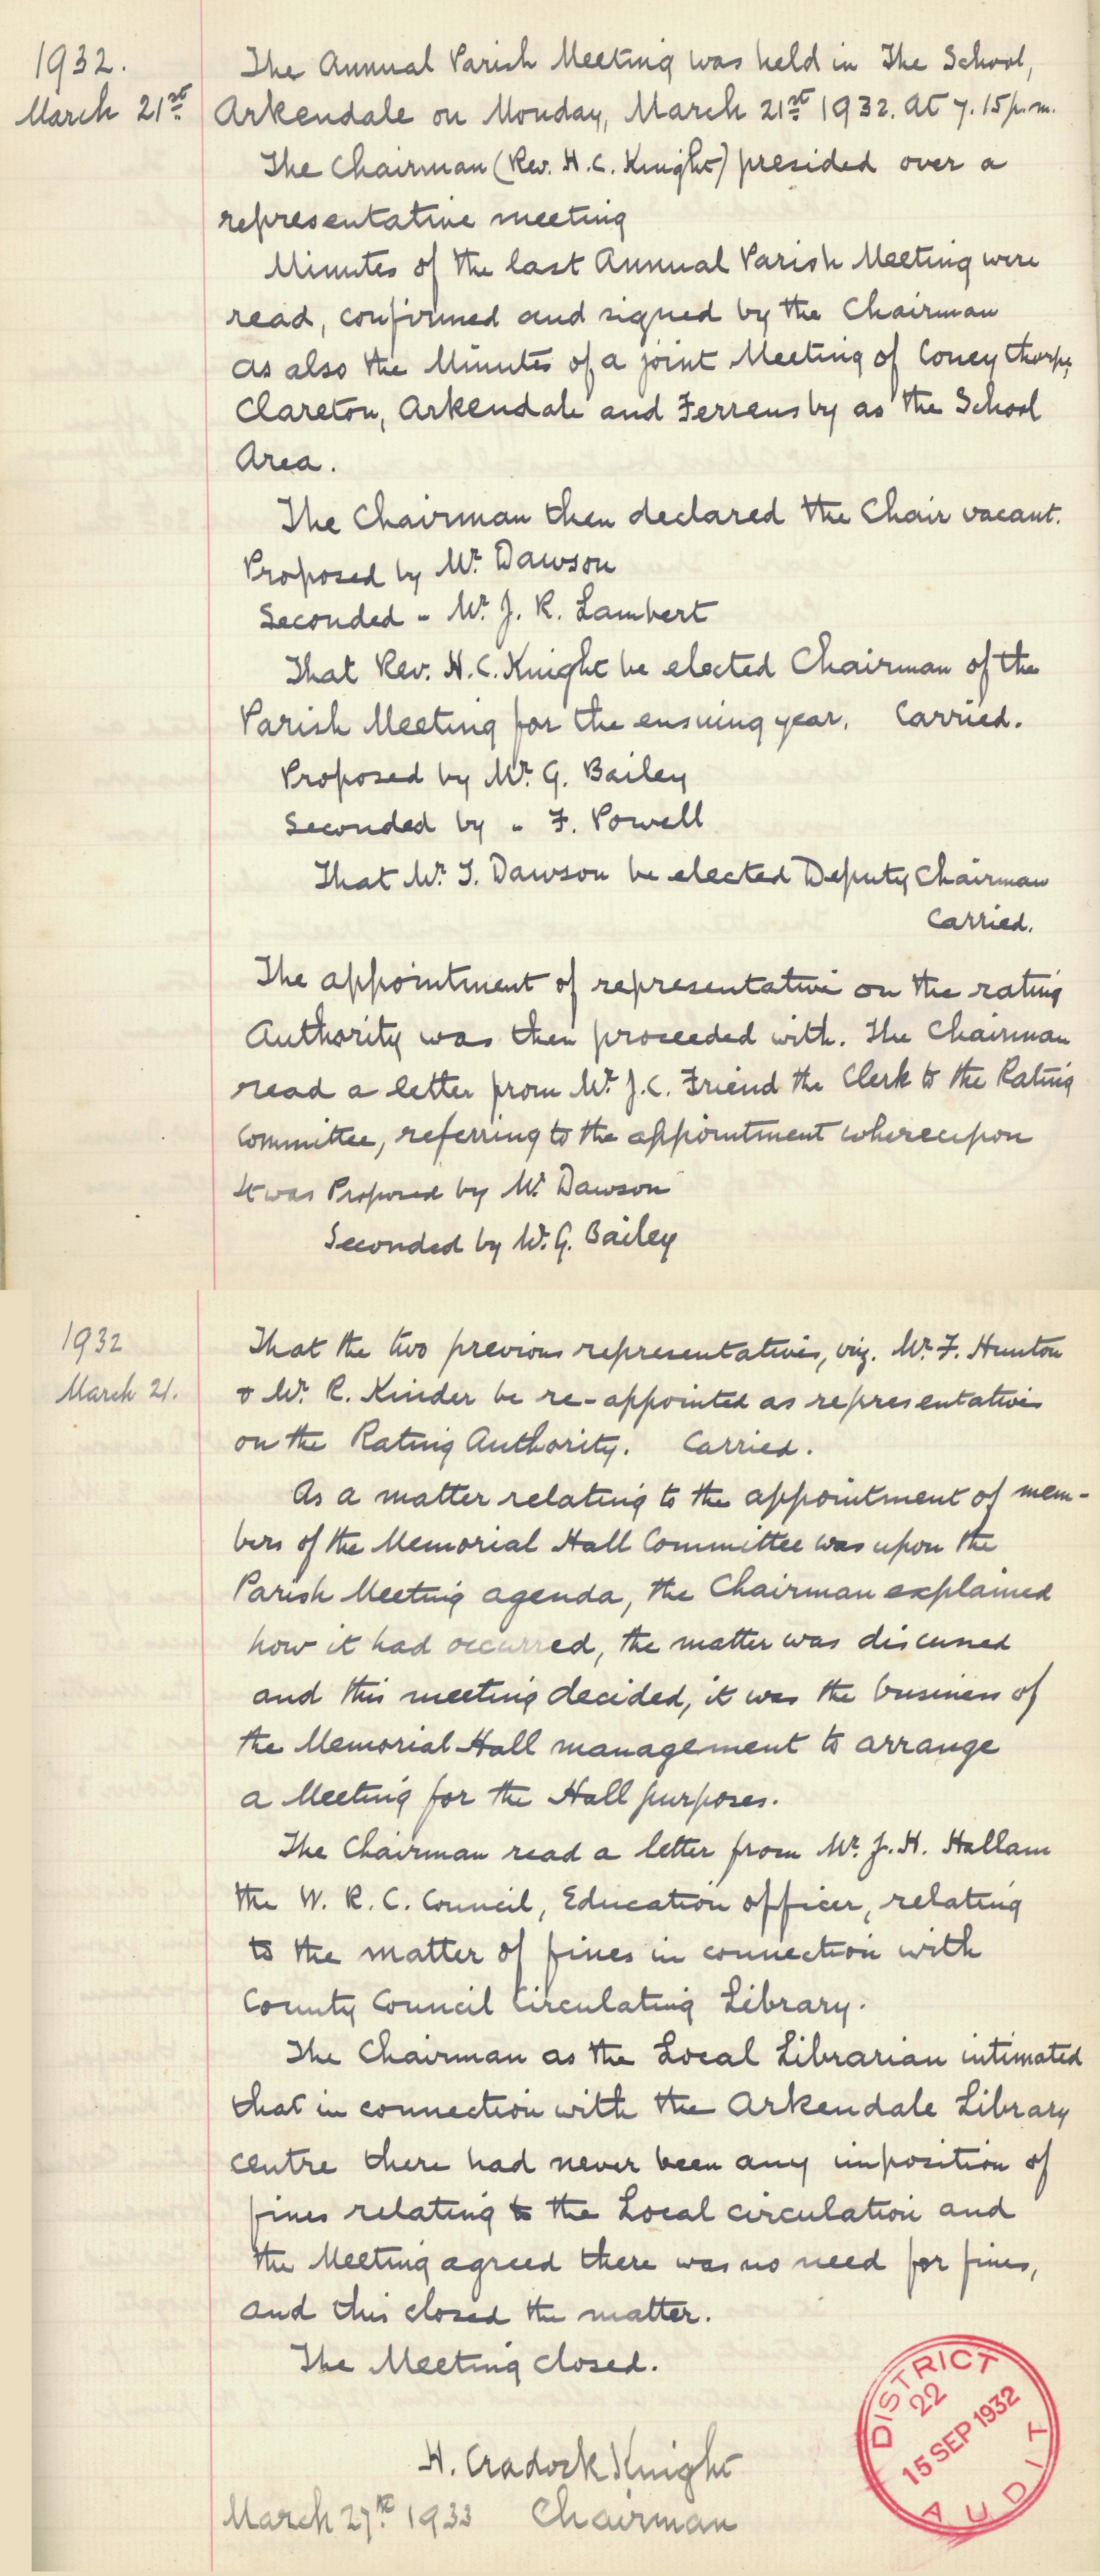 1932.
March 21st
The Annual Parish Meeting was held in The School,
Arkendale on Monday, March 21st 1932. at 7.15 p.m.
The Chairman (Rev. H. C. Knight) presided over a
representative meeting
Minutes of the last Annual Parish Meeting were
read, confirmed and signed by the Chairman
as also the Minutes of a joint Meeting of Coneythorpe,
Clareton, Arkendale and Ferrensby as the School
Area.
The Chairman then declared the Chair vacant.
Proposed by Mr. Dawson
Seconded - Mr. J. R. Lambert
That Rev. H. C. Knight be elected Chairman of the
Parish Meeting for the ensuing year. Carried.
Proposed by Mr. G. Bailey
Seconded by " F. Powell
That Mr. T. Dawson be elected Deputy Chairman
Carried.
The appointment of representative on the rating
Authority was then proceeded with. The Chairman
read a letter from Mr. J. C. Friend the Clerk to the Rating
Committee, referring to the appointment whereupon
it was Proposed by Mr. Dawson
Seconded by Mr. G. Bailey
1932
March 21.
That the two previous representatives, viz. Mr. F. Hunton
& Mr. R. Kinder be re-appointed as representatives
on the Rating Authority. Carried.
As a matter relating to the appointment of mem-
bers of the Memorial Hall Committee was upon the
Parish Meeting agenda, the Chairman explained
how it had occurred, the matter was discussed
and this meeting decided, it was the business of
the Memorial Hall management to arrange
a Meeting for the Hall purposes.
The Chairman read a letter from Mr. J. H. Hallam
the W. R. C. Council, Education officer, relating
to the matter of fines in connection with
County Council Circulating Library.
The Chairman as the Local Librarian intimated
that in connection with the Arkendale Library
centre there had never been any imposition of
fines relating to the Local circulation and
the Meeting agreed there was no need for fines,
and this closed the matter.
The Meeting closed.
H. Cradock Knight
March 27th 1933 Chairman
DISTRICT
22
15 SEP 1932
AUDIT